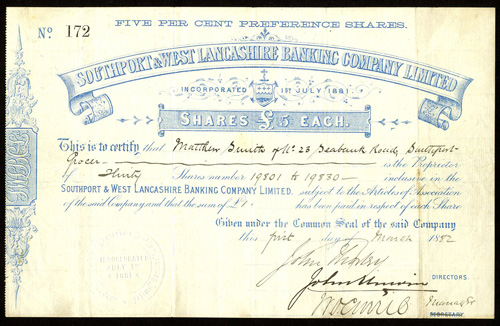 FIVE PER CENT PREFERENCE SHARES.
No. 172
SOUTHPORT & WEST LANCASHIRE BANKING COMPANY LIMITED
INCORPORATED 1ST JULY 1881.
SHARES £5 EACH.
This is to certify that Matthew Smith of No. 23, Seabank Road, Southport
Grocer is the Proprietor
of Thirty Shares number 19801 to 19830 inclusive in the
SOUTHPORT & WEST LANCASHIRE BANKING COMPANY LIMITED. subject to the Articles of Association
of the said Company, and that the sum of £1 has been paid in respect of each Share
Given under the Common Seal of the said Company
this first day of March 1882
John
John Unwin
DIRECTORS.
Manager
SECRETARY
INCORPORATED
JULY 1st
1881